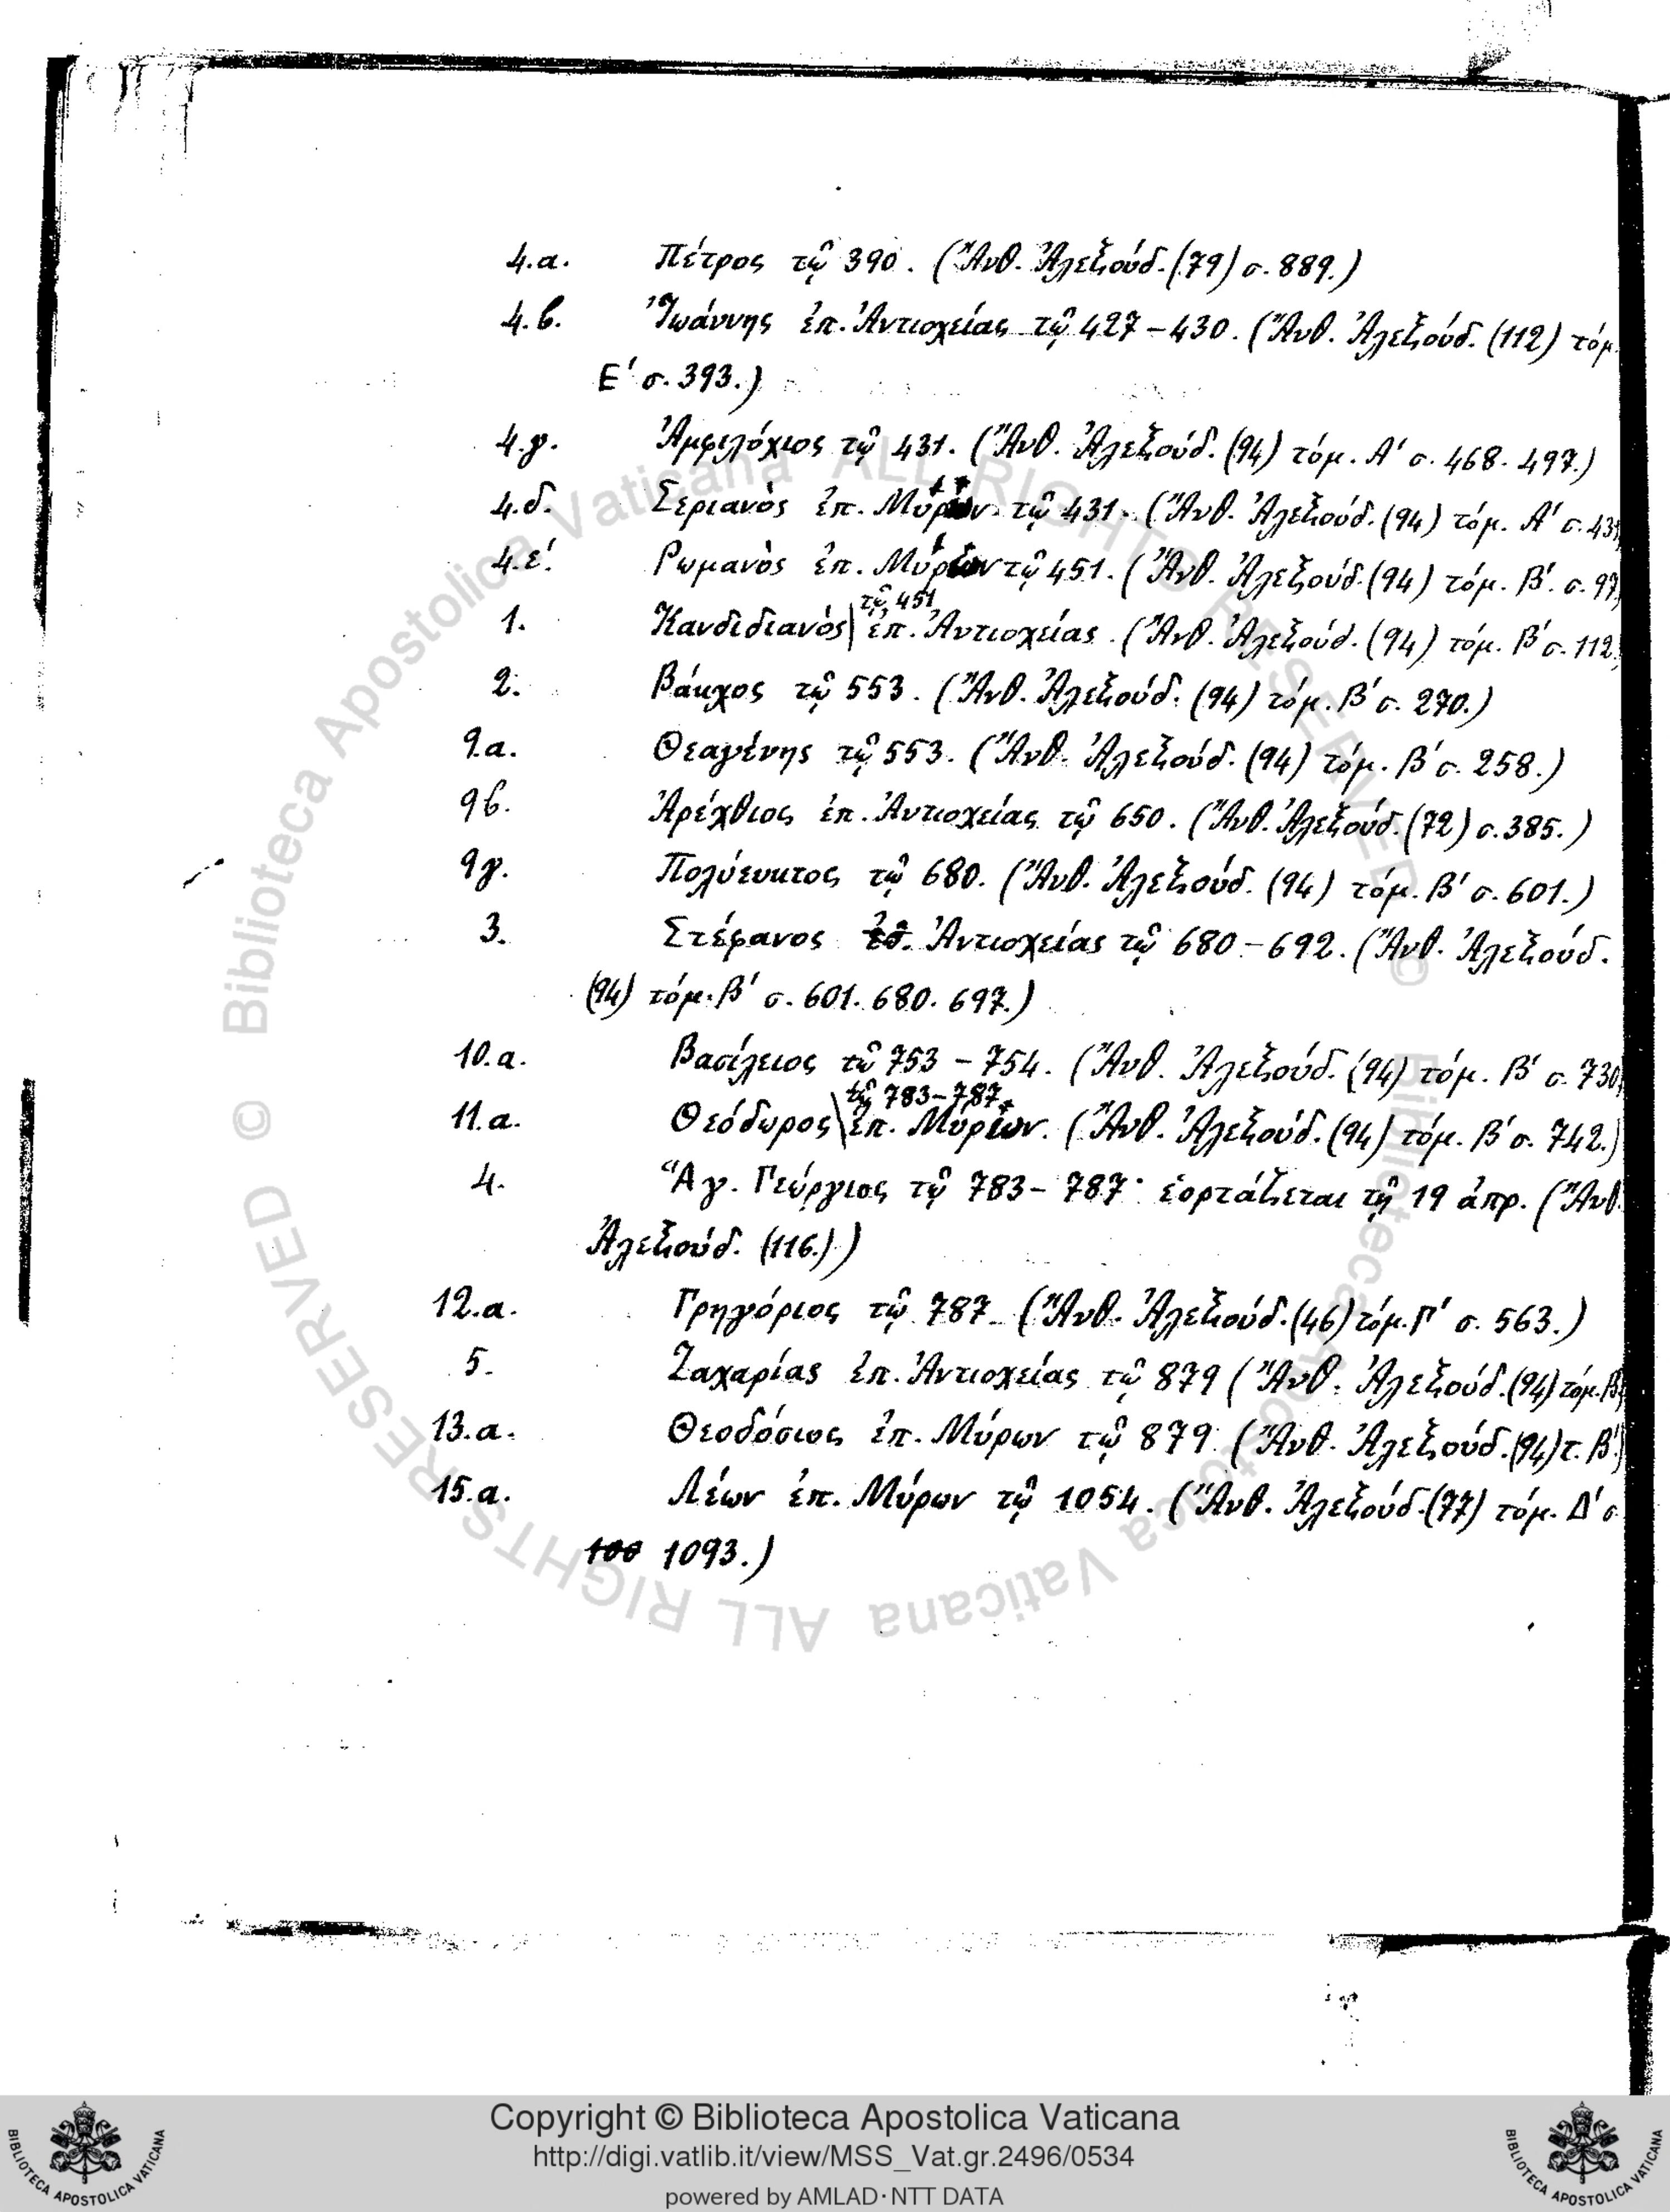 4.α. Πέτρος τῷ 390. (Ἄνθ. Ἀλεξούδ. (79) σ. 889.)
4.β. Ἰωάννης ἐπ. Ἀντιοχείας τῷ 427-430. (Ἄνθ. Ἀλεξούδ. (112) τόμ.
Ε' σ. 393.)
4.γ. Ἀμφιλόχιος τῷ 431. (Ἄνθ. Ἀλεξούδ. (94) τόμ. Α' σ. 468. 497.)
4.δ. Σεριανὸς ἐπ. Μύρων τῷ 431. (Ἄνθ. Ἀλεξούδ. (94) τόμ. Α' σ.
4.ε'. Ρωμανὸς ἐπ. Μύρων τῷ 451. (Ἄνθ. Ἀλεξούδ. (94) τόμ. Β'. σ.
τῷ 451
1. Κανδιδιανὸς ἐπ. Ἀντιοχείας. (Ἄνθ. Ἀλεξούδ. (94) τόμ. Β' σ. 112
2. Βάκχος τῷ 553. (Ἄνθ. Ἀλεξούδ. (94) τόμ. Β' σ. 270.)
9.α. Θεαγένης τῷ 553. (Ἄνθ. Ἀλεξούδ. (94) τόμ. Β' σ. 258.)
9β. Ἀρέχθιος ἐπ. Ἀντιοχείας τῷ 650. (Ἄνθ. Ἀλεξούδ. (72) σ. 385.)
9γ. Πολύευκτος τῷ 680. (Ἄνθ. Ἀλεξούδ. (94) τόμ. Β' σ. 601.)
3. Στέφανος Ἀντιοχείας τῷ 680-692. (Ἄνθ. Ἀλεξούδ.
(94) τόμ. Β' σ. 601. 680. 697.)
10.α. Βασίλειος τῷ 753-754. (Ἄνθ. Ἀλεξούδ. (94) τόμ. Β' σ. 730
τῷ 783-787
11.α. Θεόδωρος ἐπ. Μύρων. (Ἄνθ. Ἀλεξούδ. (94) τόμ. Β' σ. 742.)
4. Ἅγ. Γεώργιος τῷ 783-787· ἑορτάζεται τῇ 19 ἀπρ. (Ἄνθ.
Ἀλεξούδ. (116.))
12.α. Γρηγόριος τῷ 787. (Ἄνθ. Ἀλεξούδ. (46) τόμ. Γ' σ. 563.)
5. Ζαχαρίας ἐπ. Ἀντιοχείας τῷ 879 (Ἄνθ. Ἀλεξούδ. (94) τόμ. Β'
13.α. Θεοδόσιος ἐπ. Μύρων τῷ 879. (Ἄνθ. Ἀλεξούδ. (94) τ. Β'.)
15.α. Λέων ἐπ. Μύρων τῷ 1054. (Ἄνθ. Ἀλεξούδ. (77) τόμ. Δ' σ
100 1093.)
© Biblioteca Apostolica Vaticana ALL RIGHTS RESERVED
© Biblioteca Apostolica Vaticana ALL RIGHTS RESERVED
Copyright © Biblioteca Apostolica Vaticana
http://digi.vatlib.it/view/MSS_Vat.gr.2496/0534
powered by AMLAD·NTT DATA
BIBLIOTECA APOSTOLICA VATICANA
BIBLIOTECA APOSTOLICA VATICANA